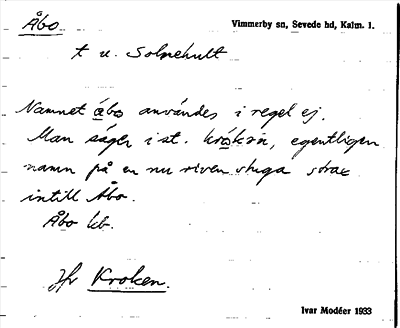 Åbo
Vimmerby sn, Sevede hd, Kalm. l.
t u. Solnehult
Namnet åbo användes i regel ej.
Man säger i st. kråkan, egentligen
namn på en nu riven stuga strax
intill Åbo.
Åbo kb.
Jfr Kroken.
Ivar Modéer 1933